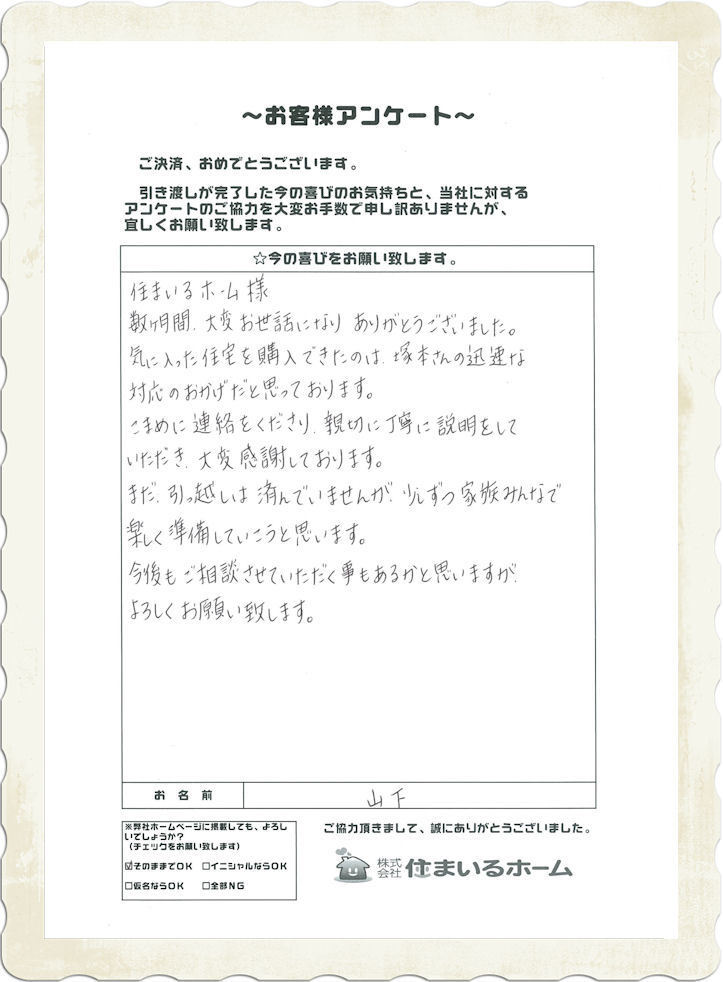 ～お客様アンケート～
ご決済、おめでとうございます。
引き渡しが完了した今の喜びのお気持ちと、当社に対する
アンケートのご協力を大変お手数で申し訳ありませんが、
宜しくお願い致します。
☆今の喜びをお願い致します。
住まいるホーム様
数ヶ月間、大変お世話になり ありがとうございました。
気に入った住宅を購入できたのは、塚本さんの迅速な
対応のおかげだと思っております。
こまめに連絡をくださり、親切に丁寧に説明をして
いただき、大変感謝しております。
まだ、引っ越しは済んでいませんが、少しずつ家族みんなで
楽しく準備していこうと思います。
今後もご相談させていただく事もあるかと思いますが、
よろしくお願い致します。
お名前 山下
※弊社ホームページに掲載しても、よろし
いでしょうか？
（チェックをお願い致します）
☑そのままでOK □イニシャルならOK
□仮名ならOK □全部NG
ご協力頂きまして、誠にありがとうございました。
株式会社 住まいるホーム